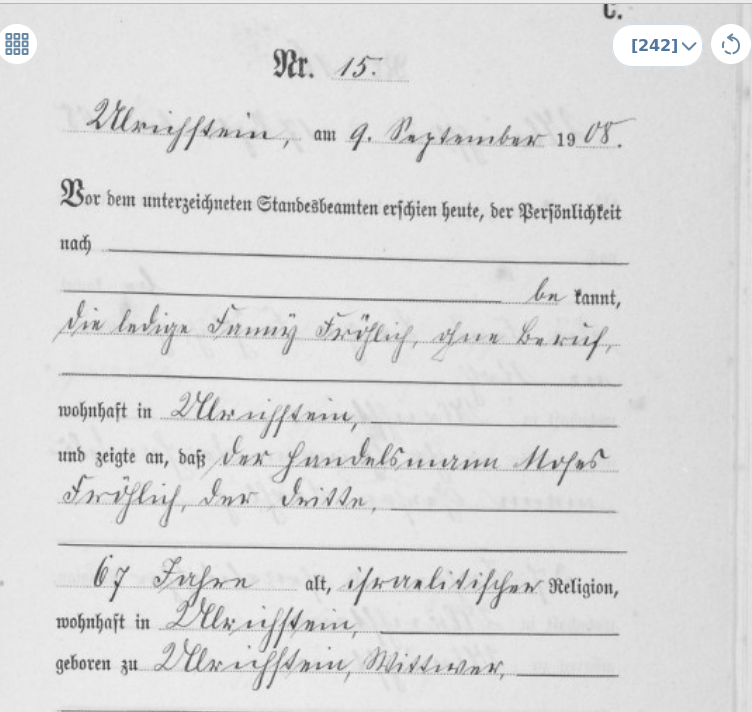 C.
[242]
Nr. 15.
Ulrichstein, am 9. September 1908.
Vor dem unterzeichneten Standesbeamten erschien heute, der Persönlichkeit
nach
be kannt,
die ledige Fanny Fröhlich, ohne Beruf,
wohnhaft in Ulrichstein,
und zeigte an, daß der Handelsmann Moses
Fröhlich, der dritte,
67 Jahre alt, israelitischer Religion,
wohnhaft in Ulrichstein,
geboren zu Ulrichstein, Wittwer,